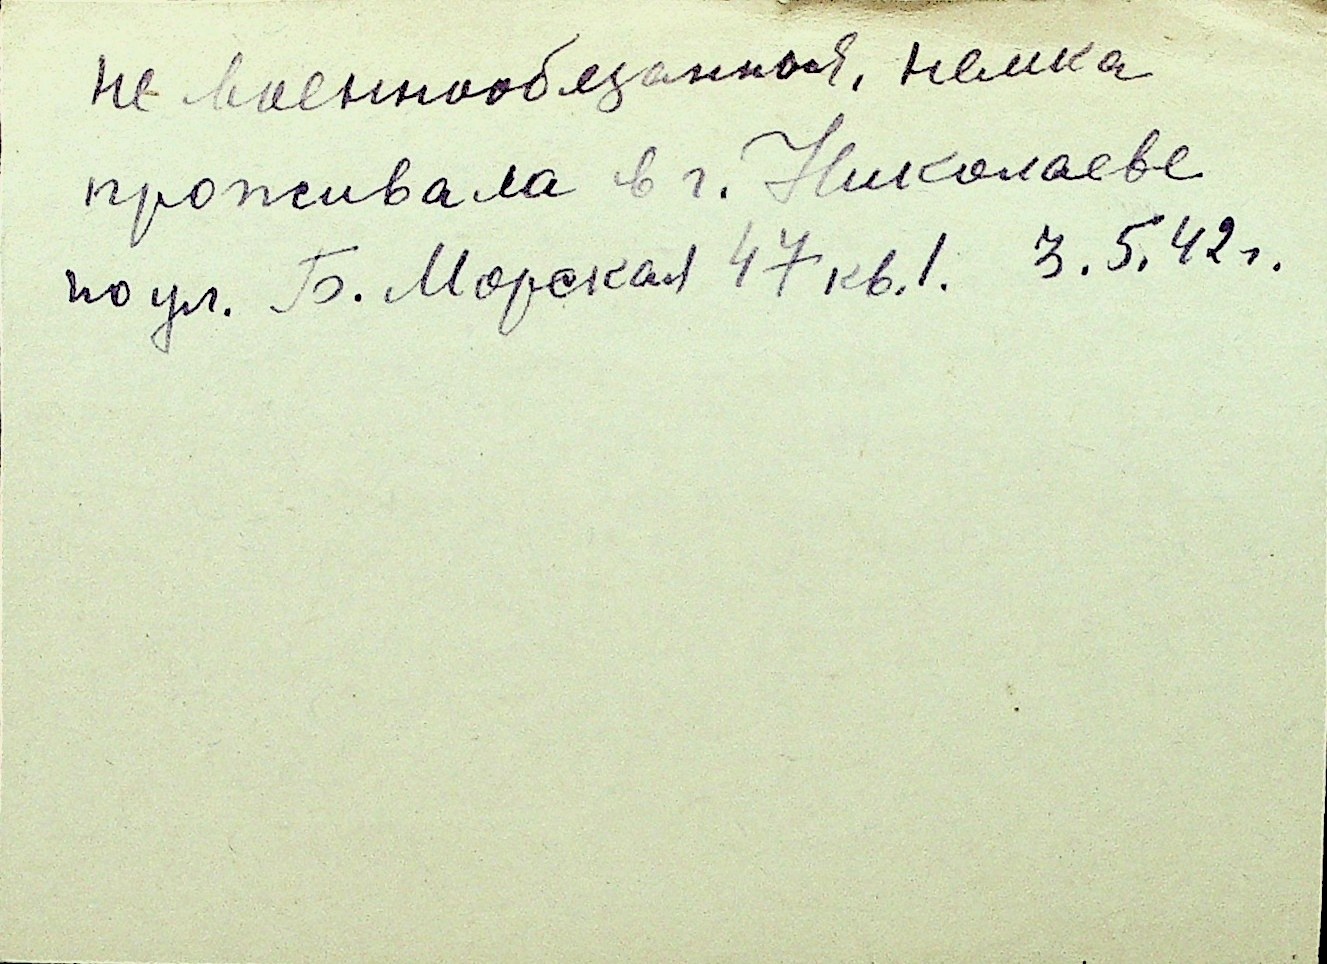 не военнообязанная, немка
проживала в г. Николаеве
по ул. Б. Морская 47 кв. 1. 3.5.42 г.